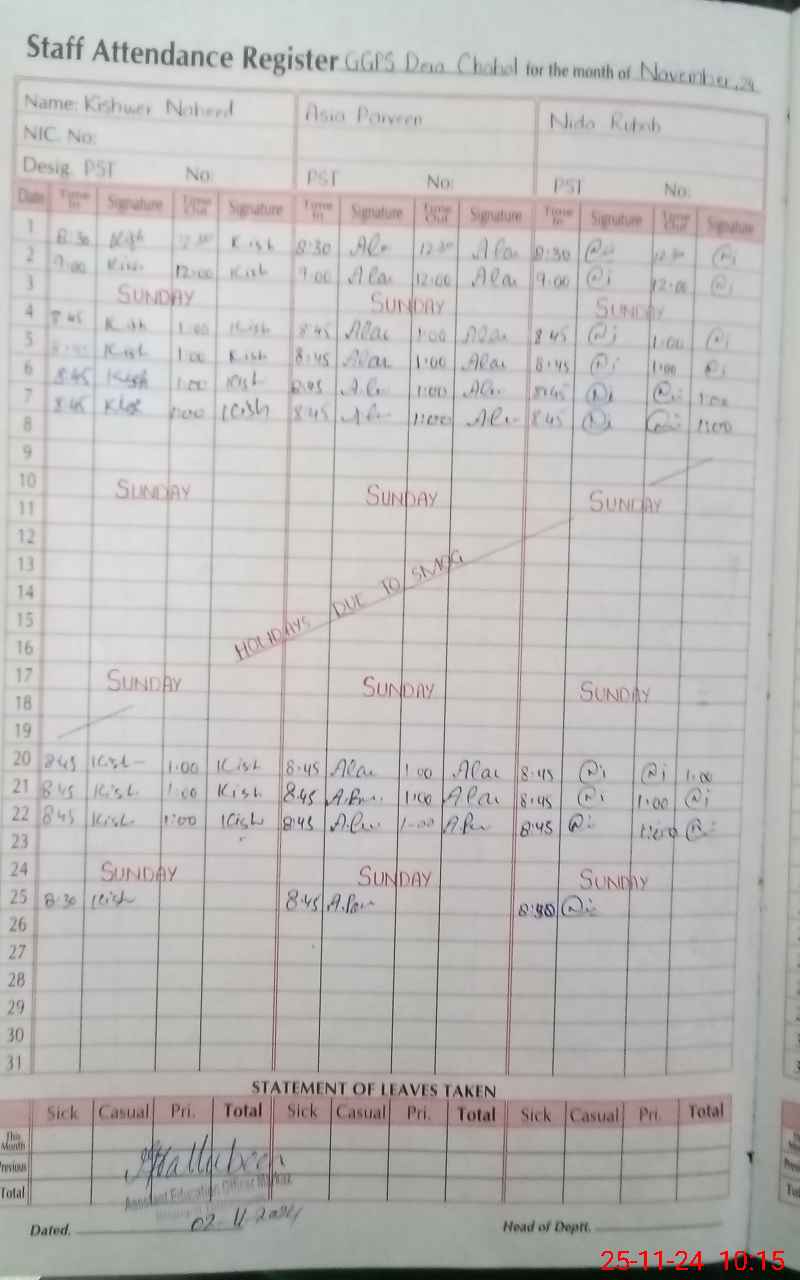 Staff Attendance Register GGPS Dera Chahal for the month of November, 24
Name: Kishwer Naheed Asia Parveen Nida Rubab
NIC. No:
Desig. PST No: PST No: PST No:
Date Time In Signature Time Out Signature Time In Signature Time Out Signature Time In Signature Time Out Signature
1 8:30 Kish 12:30 Kish 8:30 12:30 8:30 12:30
2 9:00 Kish 12:00 Kish 9:00 12:00 9:00 12:00
3 SUNDAY SUNDAY SUNDAY
4 8:45 Kish 1:00 Kish 8:45 1:00 8:45 1:00
5 8:45 Kish 1:00 Kish 8:45 1:00 8:45 1:00
6 8:45 Kish 1:00 Kish 8:45 1:00 8:45 1:00
7 8:45 Kish 1:00 Kish 8:45 1:00 8:45 1:00
8
9
10 SUNDAY SUNDAY SUNDAY
11
12
13
14
15 HOLIDAYS DUE TO SMOG
16
17 SUNDAY SUNDAY SUNDAY
18
19
20 8:45 Kish 1:00 Kish 8:45 1:00 8:45 1:00
21 8:45 Kish 1:00 Kish 8:45 1:00 8:45 1:00
22 8:45 Kish 1:00 Kish 8:45 1:00 8:45 1:00
23
24 SUNDAY SUNDAY SUNDAY
25 8:30 Kish 8:45 8:30
26
27
28
29
30
31
STATEMENT OF LEAVES TAKEN
Sick Casual Pri. Total Sick Casual Pri. Total Sick Casual Pri. Total
This Month
Previous
Total
Assistant Education Officer Markaz
Dated. 02-11-2024 Head of Deptt.
25-11-24 10:15